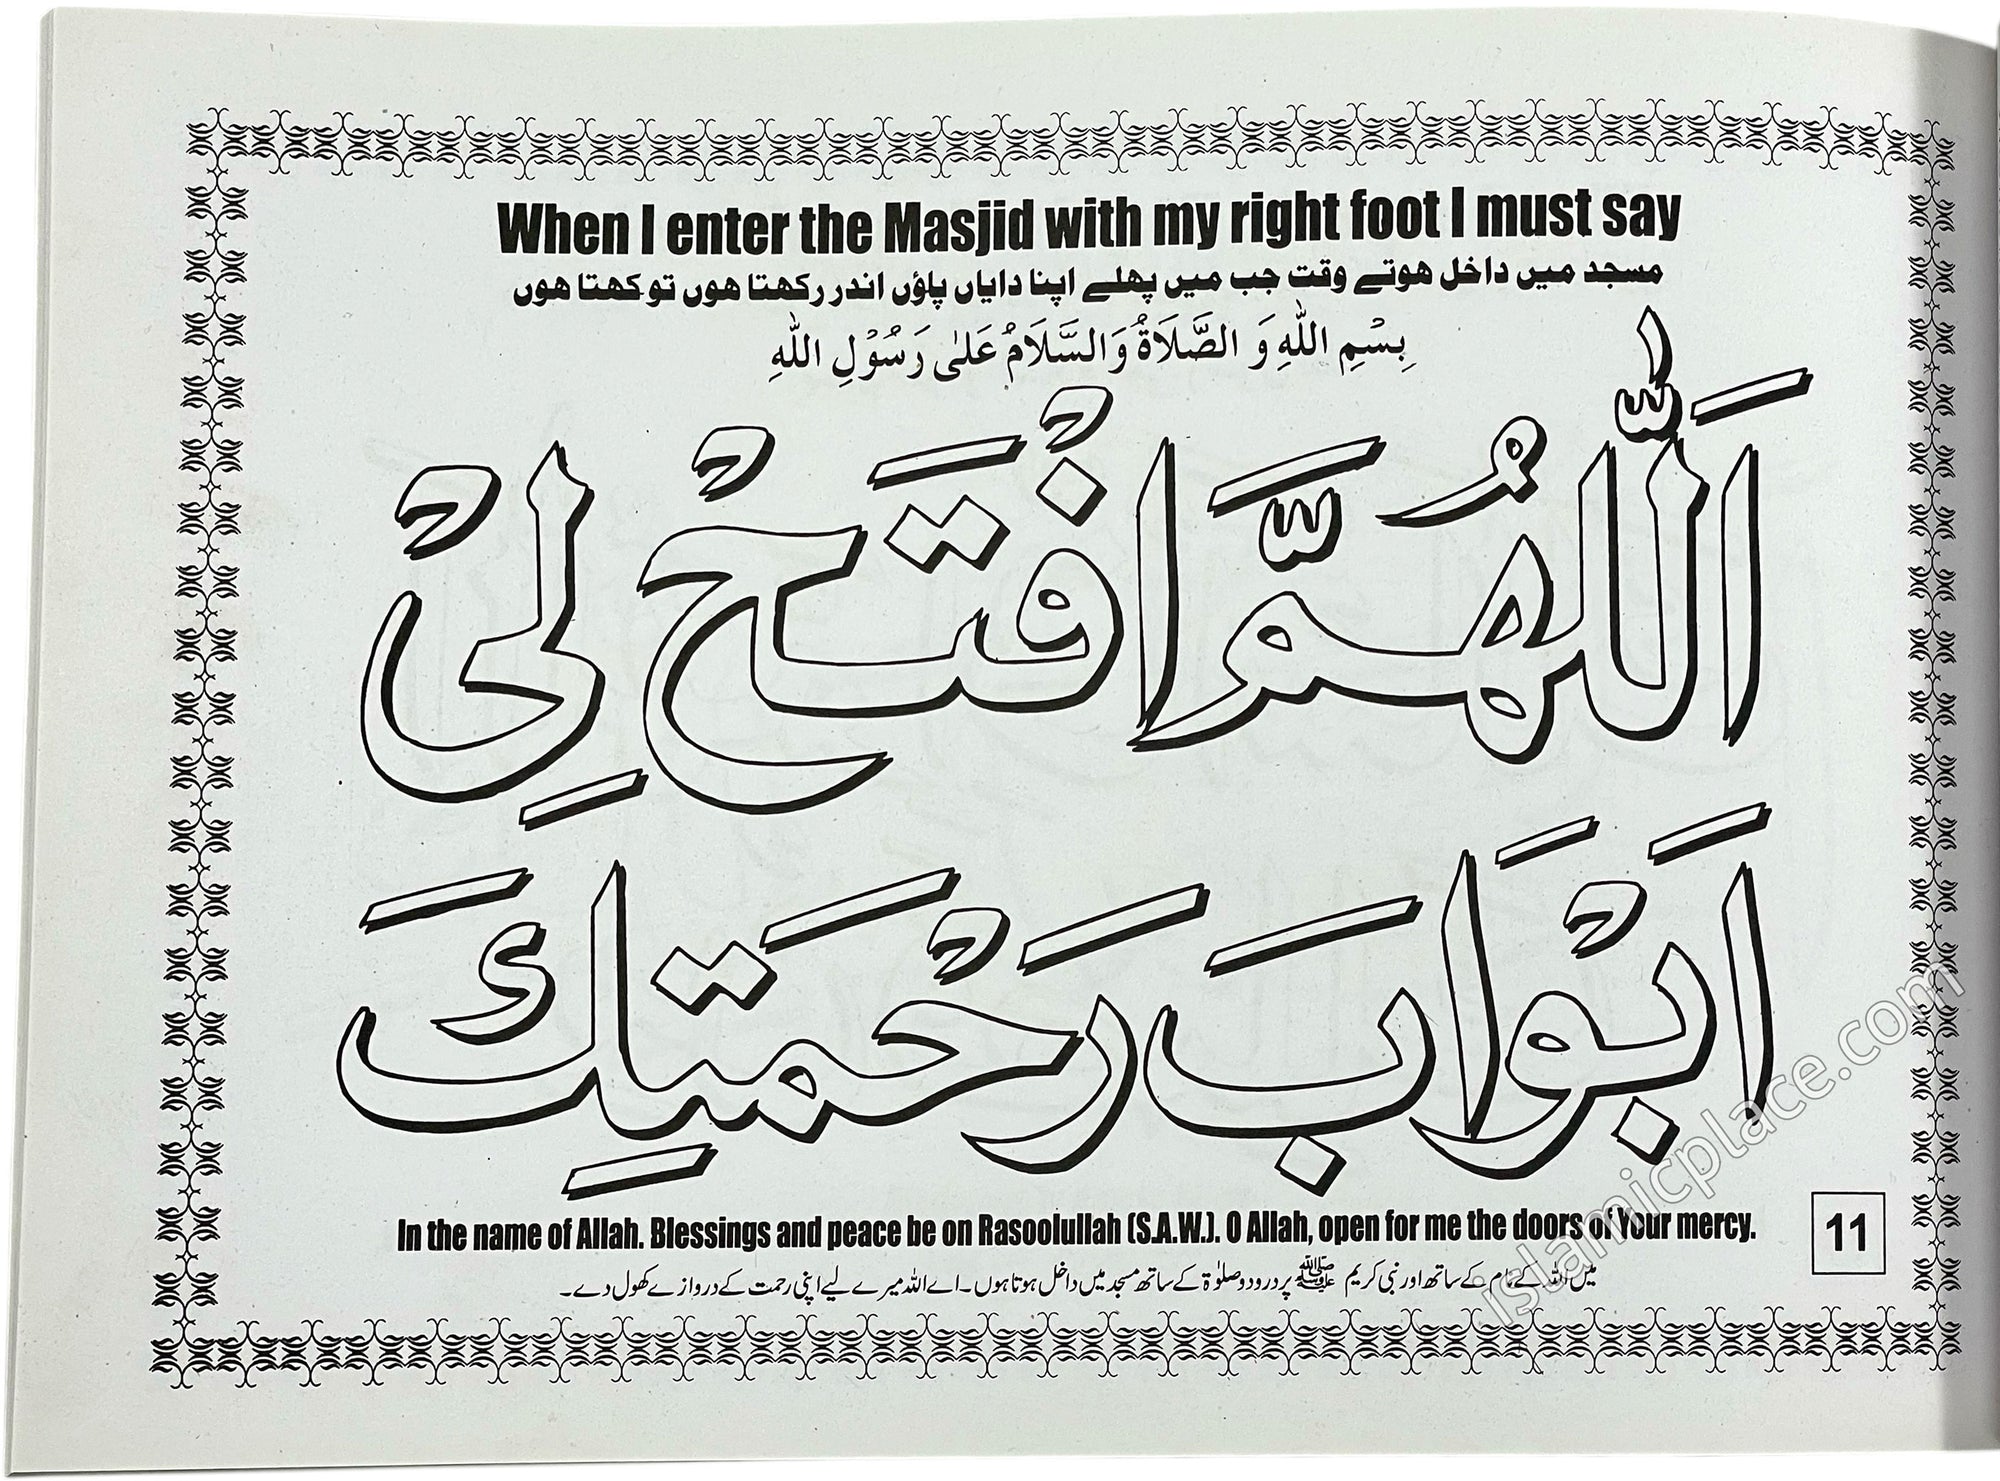 When I enter the Masjid with my right foot I must say
مسجد میں داخل ہوتے وقت جب میں پہلے اپنا دایاں پاؤں اندر رکھتا ہوں تو کہتا ہوں
بِسْمِ اللّٰهِ وَ الصَّلَاةُ وَالسَّلَامُ عَلٰى رَسُوْلِ اللّٰهِ
اَللّٰهُمَّ افْتَحْ لِيْ
اَبْوَابَ رَحْمَتِكَ
In the name of Allah. Blessings and peace be on Rasoolullah (S.A.W.). O Allah, open for me the doors of Your mercy.
میں اللہ کے نام کے ساتھ اور نبی کریم ﷺ پر درود و صلوٰۃ کے ساتھ مسجد میں داخل ہوتا ہوں۔ اے اللہ میرے لیے اپنی رحمت کے دروازے کھول دے۔
11
islamicplace.com